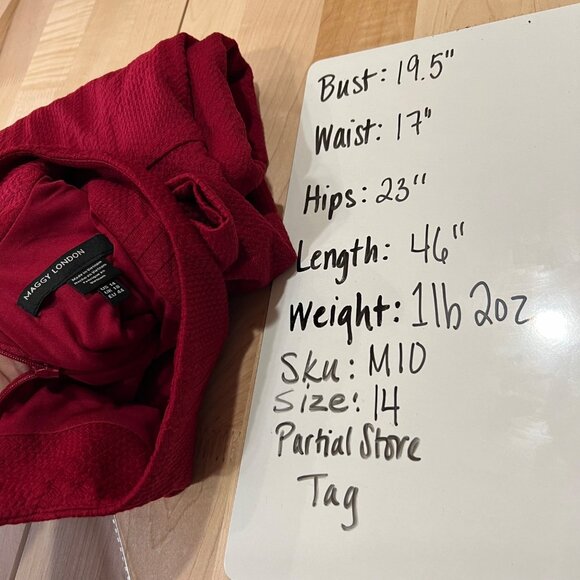 MAGGY LONDON
US 14
EU 44
Bust: 19.5"
Waist: 17"
Hips: 23"
Length: 46"
Weight: 1lb 2oz
Sku: M10
Size: 14
Partial Store
Tag